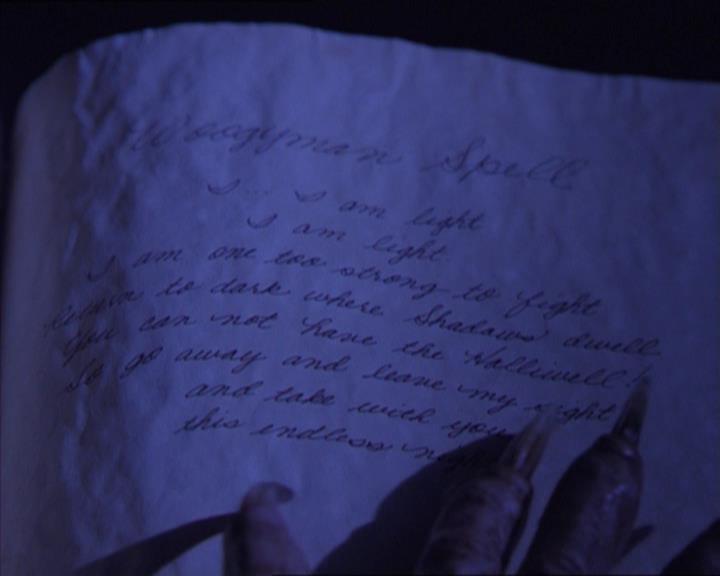 Woogyman Spell
I... I am light
I am light.
I am one too strong to fight
Return to dark where Shadows dwell
You can not have the Halliwell!
So go away and leave my sight
and take with you
this endless